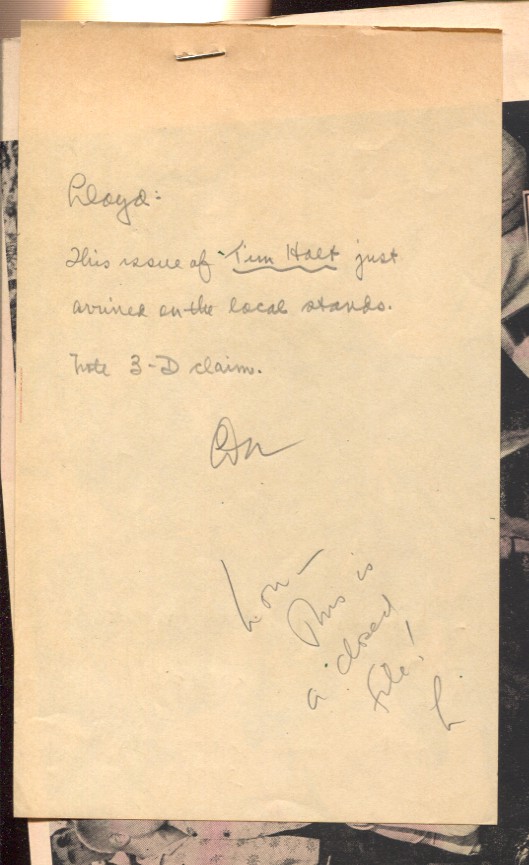 Lloyd:
This issue of "Tim Holt" just
arrived on the local stands.
Note 3-D claim.
Lon –
This is
a closed
file!
L.